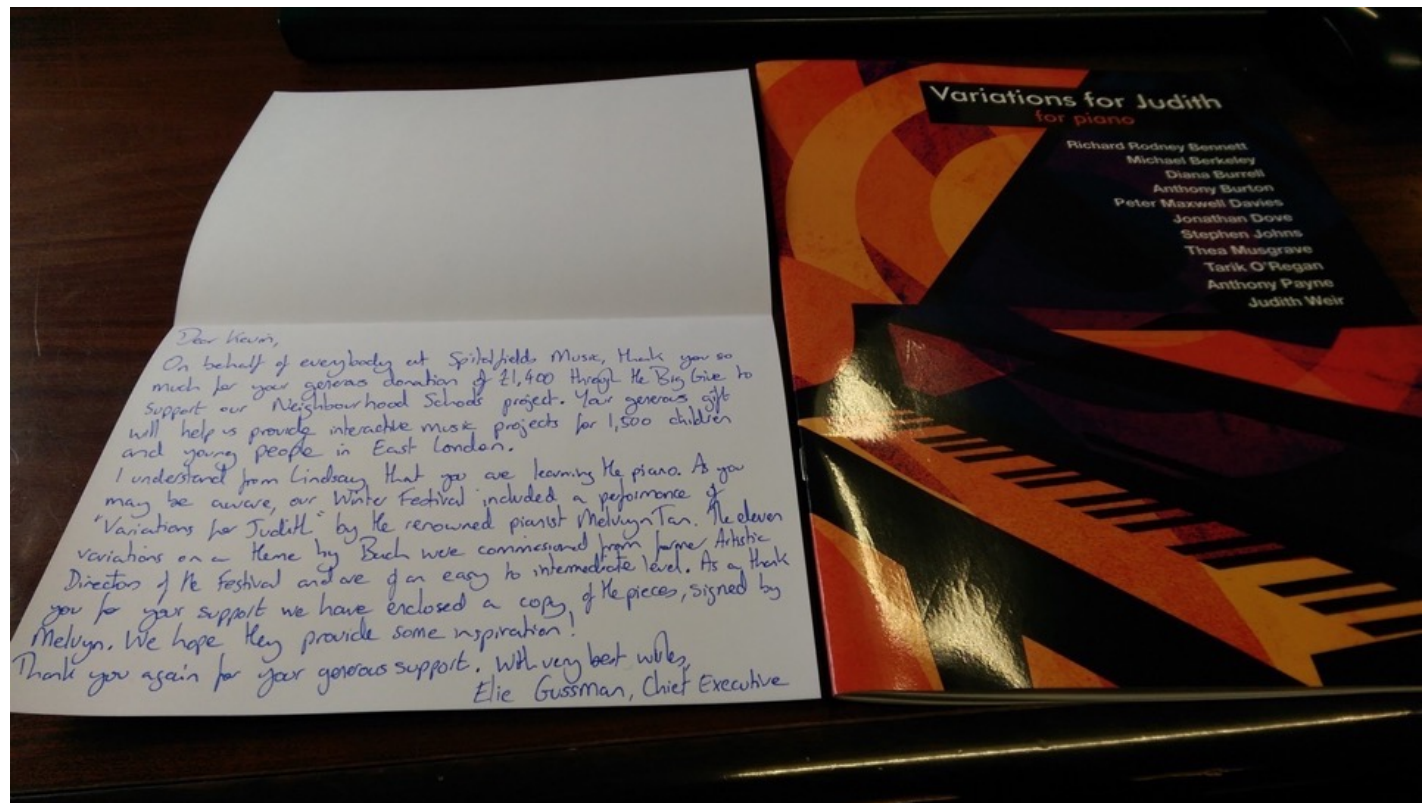 Dear Kevin,
On behalf of everybody at Spitalfields Music, thank you so
much for your generous donation of £1,400 through the Big Give to
support our Neighbourhood Schools project. Your generous gift
will help us provide interactive music projects for 1,500 children
and young people in East London.
I understand from Lindsay that you are learning the piano. As you
may be aware, our Winter Festival included a performance of
"Variations for Judith" by the renowned pianist Melvyn Tan. The eleven
variations on a theme by Bach were commissioned from former Artistic
Directors of the Festival and are of an easy to intermediate level. As a thank
you for your support we have enclosed a copy of the pieces, signed by
Melvyn. We hope they provide some inspiration!
Thank you again for your generous support. With very best wishes,
Elie Gussman, Chief Executive
Variations for Judith
for piano
Richard Rodney Bennett
Michael Berkeley
Diana Burrell
Anthony Burton
Peter Maxwell Davies
Jonathan Dove
Stephen Johns
Thea Musgrave
Tarik O'Regan
Anthony Payne
Judith Weir